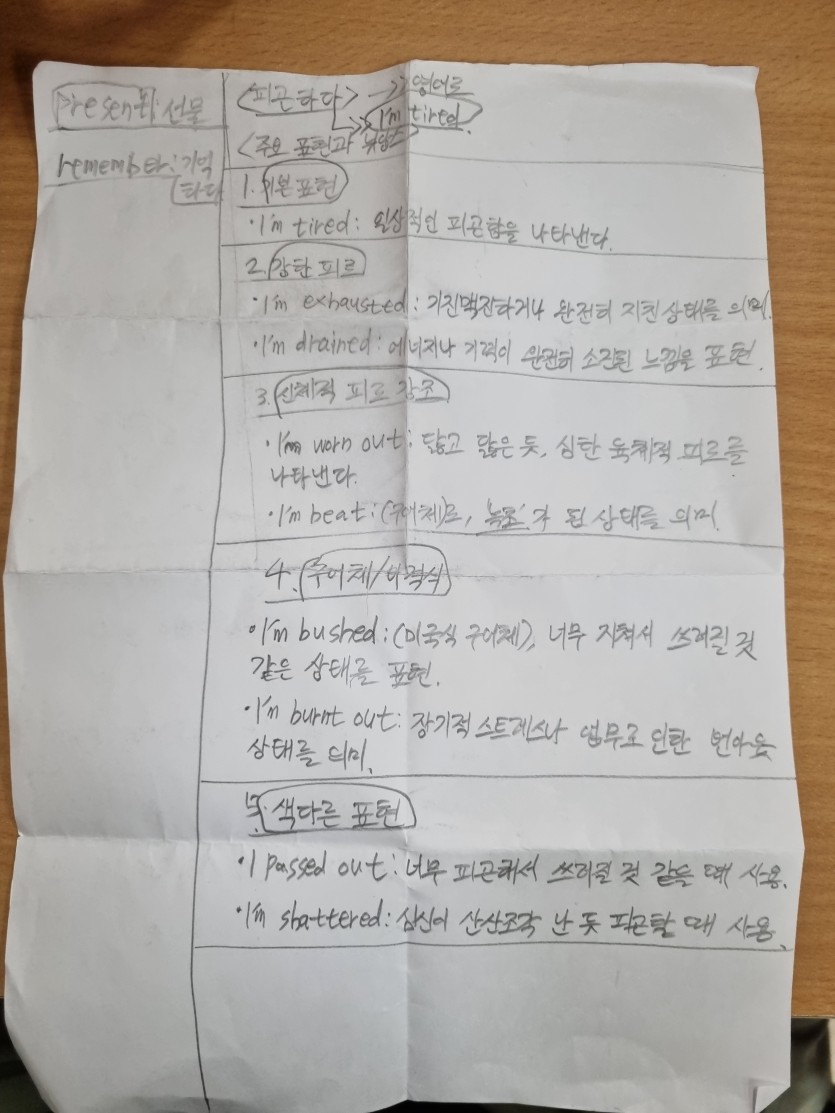 present: 선물
remember: 기억
하다
<피곤하다> → 영어로
→ I'm tired.
<주요 표현과 뉘앙스>
1. 기본 표현
· I'm tired: 일상적인 피곤함을 나타낸다.
2. 강한 피로
· I'm exhausted: 기진맥진하거나 완전히 지친 상태를 의미.
· I'm drained: 에너지나 기력이 완전히 소진된 느낌을 표현.
3. 신체적 피로 강조
· I'm worn out: 닳고 닳은 듯, 심한 육체적 피로를
나타낸다.
· I'm beat: (구어체)로, 녹초가 된 상태를 의미.
4. 구어체/미국식
· I'm bushed: (미국식 구어체), 너무 지쳐서 쓰러질 것
같은 상태를 표현.
· I'm burnt out: 장기적 스트레스나 업무로 인한 번아웃
상태를 의미.
5. 색다른 표현
· I passed out: 너무 피곤해서 쓰러질 것 같을 때 사용.
· I'm shattered: 심신이 산산조각 난 듯 피곤할 때 사용.